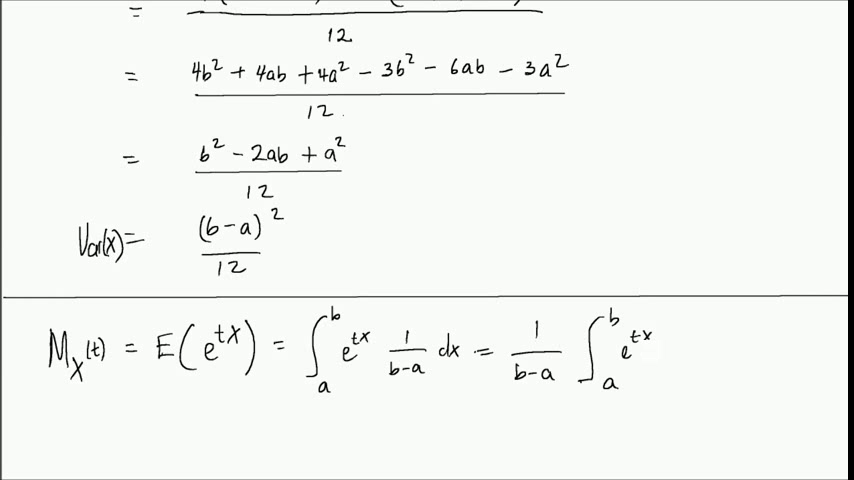 =
12
= 4b² + 4ab + 4a² - 3b² - 6ab - 3a²
12
= b² - 2ab + a²
12
Var(x) = (b-a)²
12
M_X(t) = E(e^{tX}) = ∫_a^b e^{tx} 1/(b-a) dx = 1/(b-a) ∫_a^b e^{tx}